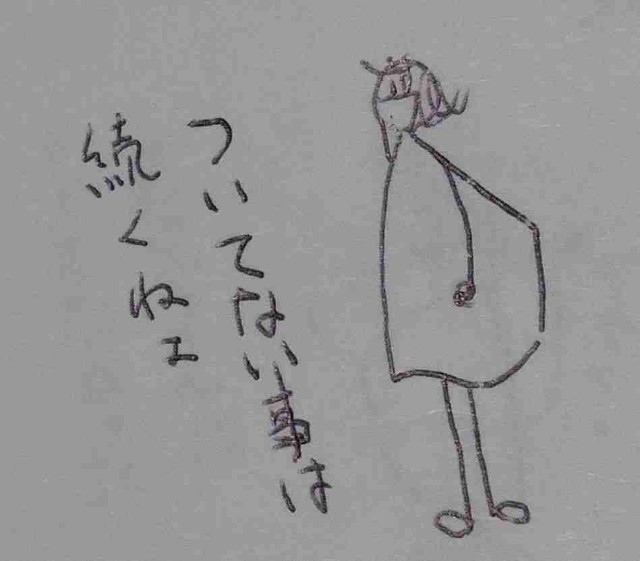 ついてない事は
続くねェ